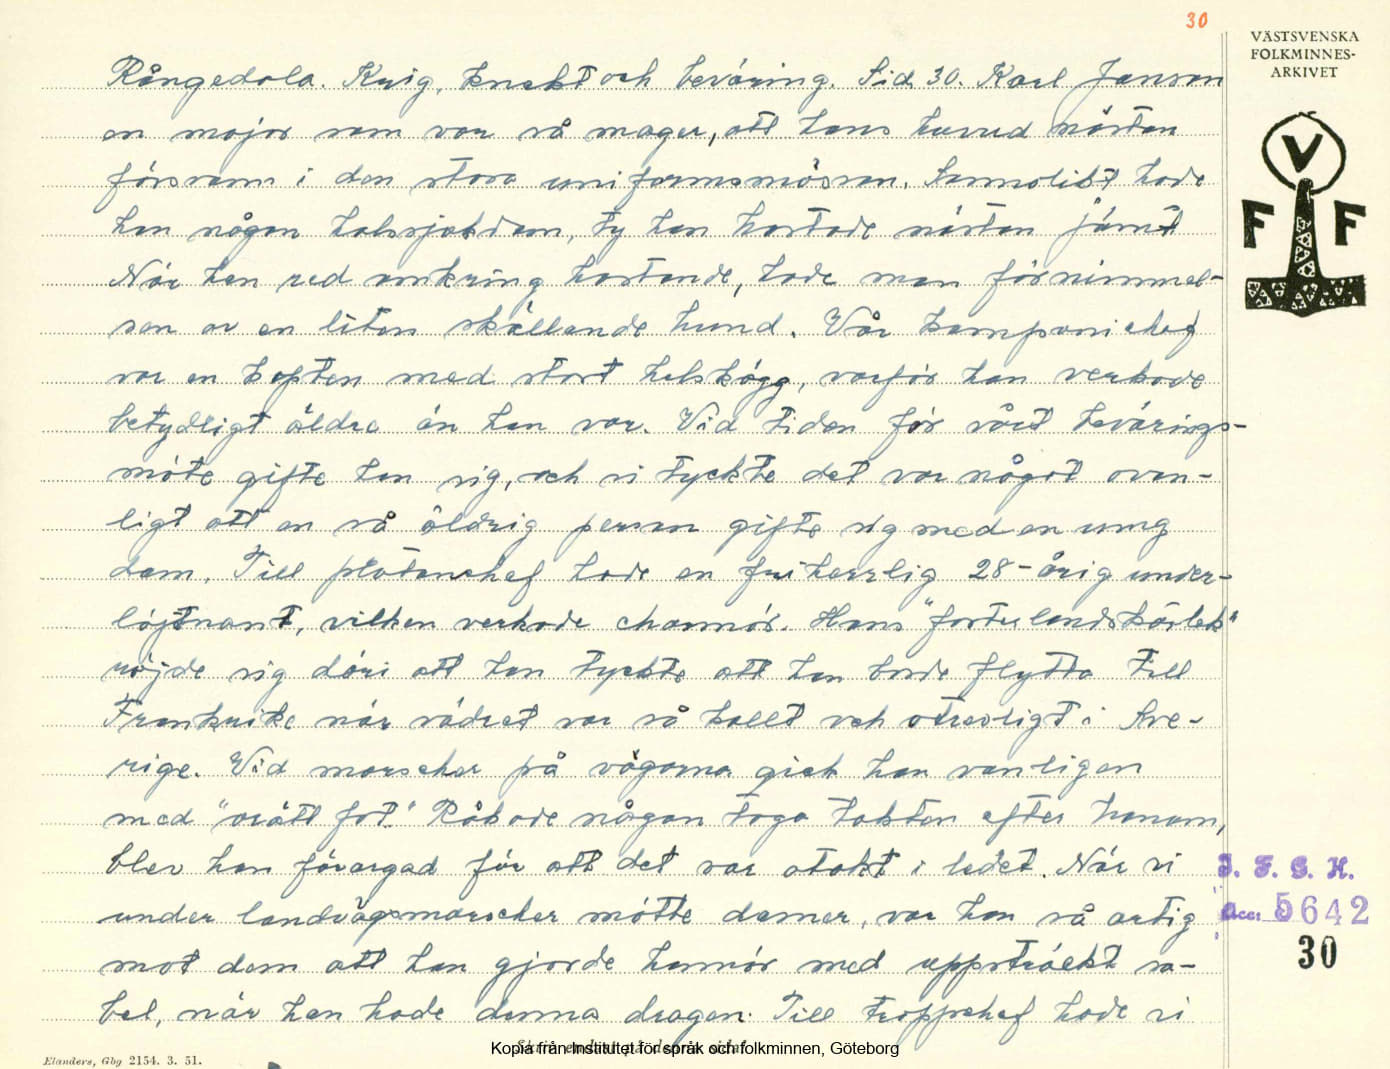 30
VÄSTSVENSKA
FOLKMINNES-
ARKIVET
V
F F
Rångedala. Krig, knekt och beväring. Sid. 30. Karl Janson
en major som var så mager, att hans huvud nästan
försvann i den stora uniformsmössan. Sannolikt hade
han någon halssjukdom, ty han hostade nästan jämt
När han red omkring hostande, hade man förnimmel-
sen av en liten skällande hund. Vår kompanichef
var en kapten med stort helskägg, varför han verkade
betydligt äldre än han var. Vid tiden för vårt bevärings-
möte gifte han sig, och vi tyckte det var något ovan-
ligt att en så åldrig person gifte sig med en ung
dam. Till plutonchef hade en friherrlig 28-årig under-
löjtnant, vilken verkade charmör. Hans "fosterlandskärlek"
röjde sig däri att han tyckte att han borde flytta till
Frankrike när vädret var så kallt och otrevligt i Sve-
rige. Vid marscher på vägarna gick han vanligen
med "orätt fot." Råkade någon taga takten efter honom,
blev han förargad för att det var otakt i ledet. När vi
under landsvägsmarscher mötte damer, var han så artig
mot dem att han gjorde honnör med uppsträckt sa-
bel, när han hade denna dragen. Till troppchef hade vi
I. F. G. H.
Acc: 5642
30
Skriv endast på denna sida!
Kopia från Institutet för språk och folkminnen, Göteborg
Elanders, Gbg 2154. 3. 51.